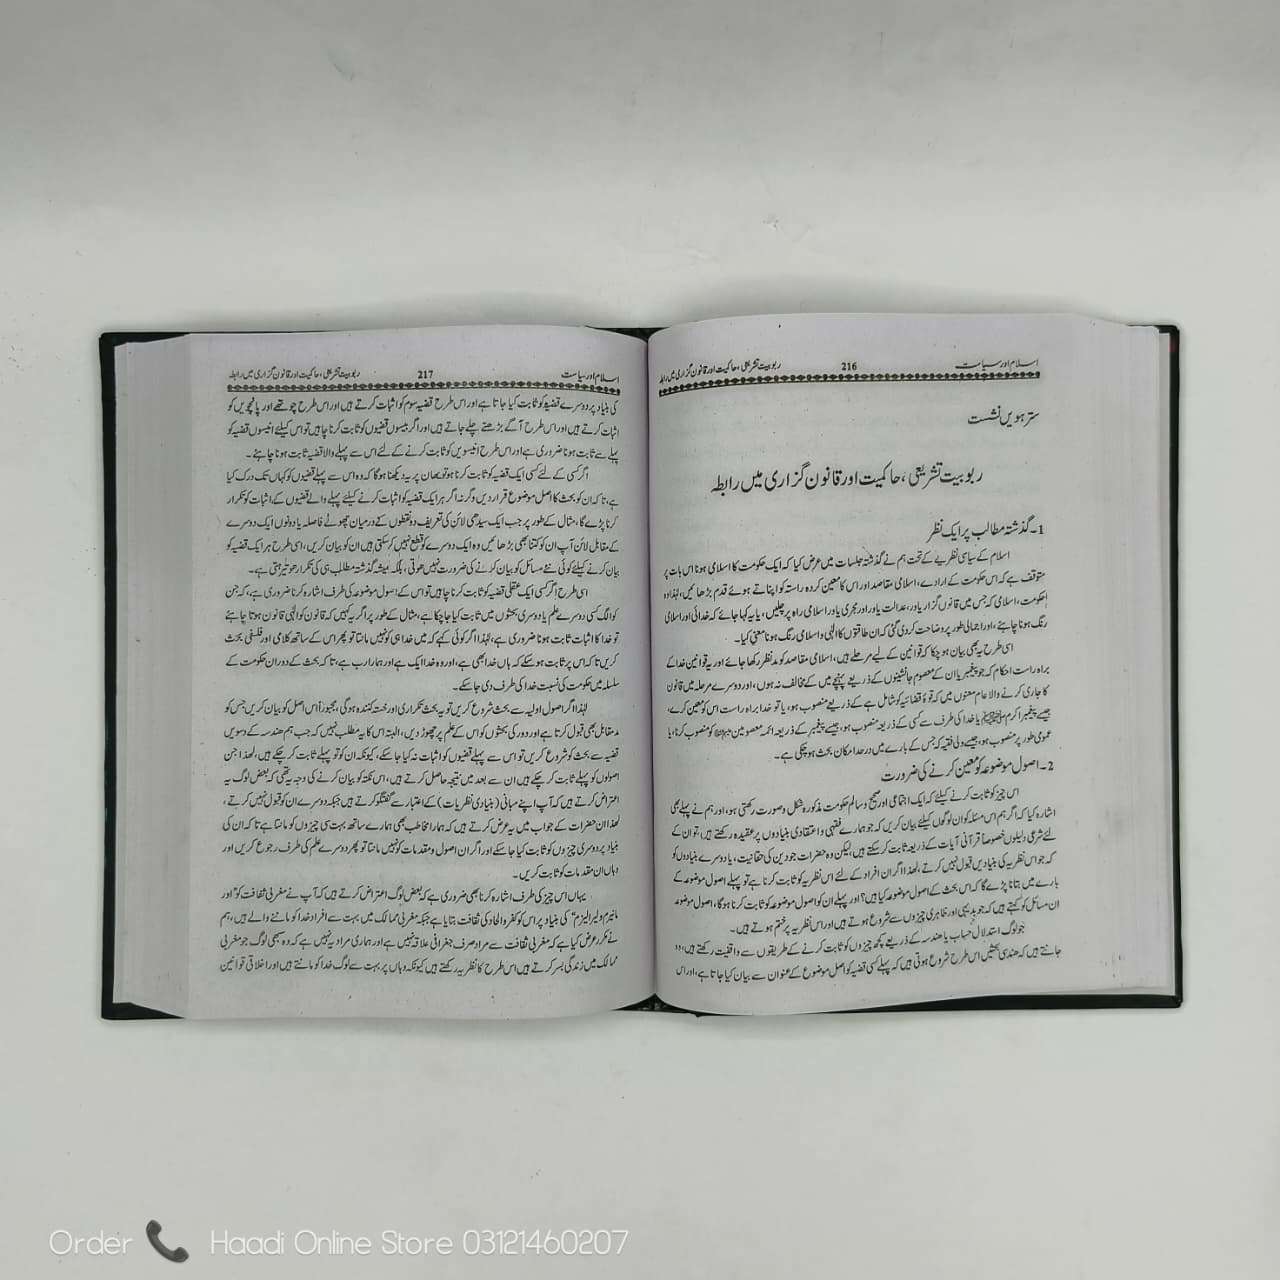 اسلام اور سیاست 216 ربوبیت تشریعی، حاکمیت اور قانون گزاری میں رابطہ
سترہویں نشست
ربوبیت تشریعی، حاکمیت اور قانون گزاری میں رابطہ
1۔ گذشتہ مطالب پر ایک نظر
اسلام کے سیاسی نظریے کے تحت ہم نے گذشتہ جلسات میں عرض کیا کہ ایک حکومت کا اسلامی ہونا اس بات پر
متوقف ہے کہ اس حکومت کے ارادے، اسلامی مقاصد اور اس کا معین کردہ راستہ کو اپناتے ہوئے قدم بڑھائیں، لہٰذا وہ
حکومت، اسلامی کہ جس میں قانون گزار یاور، عدالت یاور اور مجری یاور اسلامی راہ پر چلیں، یا یہ کہا جائے کہ خدائی اور اسلامی
رنگ ہونا چاہئے، اور اجمالی طور پر وضاحت کر دی گئی کہ ان طاقتوں کا الٰہی و اسلامی رنگ ہونا معنی کیا۔
اسی طرح یہ بھی بیان ہو چکا کہ قوانین کے لیے مرحلے ہیں، اسلامی مقاصد کو مد نظر رکھا جائے اور یہ قوانین خدا کے
براہ راست احکام کہ جو پیغمبر یا ان کے معصوم جانشینوں کے ذریعے پہنچے ہیں کے مخالف نہ ہوں، اور دوسرے مرحلہ میں قانون
کا جاری کرنے والا عام معنوں میں کہ قوۂ قضائیہ کو شامل ہے کے ذریعے منصوب ہو، یا تو خدا براہ راست اس کو معین کرے،
جیسے پیغمبر اکرم ﷺ یا خدا کی طرف سے کسی کے ذریعہ منصوب ہو، جیسے پیغمبر کے ذریعہ ائمہ معصومین کو منصوب کرنا، یا
عمومی طور پر منصوب ہو، جیسے ولی فقیہ کہ جس کے بارے میں در حد امکان بحث ہو چکی ہے۔
2۔ اصول موضوعہ کو معین کرنے کی ضرورت
اس چیز کو ثابت کرنے کیلئے کہ ایک اجتماعی اور صحیح و سالم حکومت مذکورہ شکل و صورت رکھتی ہو، اور ہم نے پہلے بھی
اشارہ کیا کہ اگر ہم اس مسئلہ کو ان لوگوں کیلئے بیان کریں کہ جو ہمارے فقہی و اعتقادی بنیادوں پر عقیدہ رکھتے ہیں، تو ان کے
لئے شرعی دلیلوں خصوصاً قرآنی آیات کے ذریعہ ثابت کر سکتے ہیں، لیکن وہ حضرات جو دین کی حقانیت، یا دوسرے بنیادوں کو
کہ جو اس نظریہ کی بنیاد ہیں قبول نہیں کرتے، لھذا اگر ان افراد کے لئے اس نظریہ کو ثابت کرنا ہے تو پہلے اصول موضوعہ کے
بارے میں بتانا پڑے گا کہ اس بحث کے اصول موضوعہ کیا ہیں؟ اور پہلے ان کو اصول موضوعہ کو ثابت کرنا ہوگا، اصول موضوعہ
ان مسائل کو کہتے ہیں کہ جو بدیہی اور ظاہری چیزوں سے شروع ہوتے ہیں اور اس نظریہ پر ختم ہوتے ہیں۔
جو لوگ استدلال حساب یا ہندسہ کے ذریعے کچھ چیزوں کو ثابت کرنے کے طریقوں سے واقفیت رکھتے ہیں، وہ
جانتے ہیں کہ ہندسی بحثیں اس طرح شروع ہوتی ہیں کہ پہلے کسی قضیہ کو اصل موضوع کے عنوان سے بیان کیا جاتا ہے، اور اس
اسلام اور سیاست 217 ربوبیت تشریعی، حاکمیت اور قانون گزاری میں رابطہ
کی بنیاد پر دوسرے قضیہ کو ثابت کیا جاتا ہے اور اس طرح قضیہ سوم کو اثبات کرتے ہیں اور اس طرح چوتھے اور پانچویں کو
اثبات کرتے ہیں اور اس طرح آگے بڑھتے چلے جاتے ہیں اور اگر بیسوں قضیوں کو ثابت کرنا چاہیں تو اس کیلئے انیسوں قضیہ کو
پہلے سے ثابت ہونا ضروری ہے اور اس طرح انیسویں کو ثابت کرنے کے لئے اس سے پہلے والا قضیہ ثابت ہونا چاہئے۔
اگر کسی کے لئے کسی ایک قضیہ کو ثابت کرنا ہو تو یہاں پر یہ دیکھنا ہوگا کہ وہ اس سے پہلے قضیوں کو کہاں تک درک کیا
ہے، تا کہ ان کو بحث کا اصل موضوع قرار دیں وگرنہ اگر ہر ایک قضیہ کو اثبات کرنے کیلئے پہلے والے قضیوں کے اثبات کو تکرار
کرنا پڑے گا، مثال کے طور پر جب ایک سیدھی لائن کی تعریف دو نقطوں کے درمیان چھوٹے فاصلہ یا دونوں ایک دوسرے
کے مقابل لائن آپ ان کو کتنا بھی بڑھائیں وہ ایک دوسرے کو قطع نہیں کر سکتی ہیں ان کو بیان کریں، اسی طرح ہر ایک قضیہ کو
بیان کرنے کیلئے کوئی نئے مسائل کو بیان کرنے کی ضرورت نہیں ھوتی، بلکہ ہمیشہ گذشتہ مطالب ہی کی تکرار ھوتی رہتی ہے۔
اسی طرح اگر کسی ایک عقلی قضیہ کو ثابت کرنا چاہیں تو اس کے اصول موضوعہ کی طرف اشارہ کرنا ضروری ہے، کہ جن
کو الگ کسی دوسرے علم یا دوسری بحثوں میں ثابت کیا جا چکا ہے، مثال کے طور پر اگر یہ کہیں کہ قانون کو الٰہی قانون ہونا چاہئے
تو خدا کا اثبات ثابت ہونا ضروری ہے، لہٰذا اگر کوئی کہے کہ میں خدا ہی کو نہیں مانتا تو پھر اس کے ساتھ کلامی اور فلسفی بحث
کریں تا کہ اس پر ثابت ہو سکے کہ ہاں خدا بھی ہے، اور وہ خدا ایک ہے اور ہمارا رب ہے، تا کہ بحث کے دوران حکومت کے
سلسلہ میں حکومت کی نسبت خدا کی طرف دی جا سکے۔
لہٰذا اگر اصول اولیہ سے بحث شروع کریں تو یہ بحث تکراری اور خستہ کنندہ ہوگی، مجبوراً اس اصل کو بیان کریں جس کو
مد مقابل بھی قبول کرتا ہے اور دور کی بحثوں کو اس کے علم پر چھوڑ دیں، البتہ اس کا یہ مطلب نہیں کہ جب ہم ہندسہ کے دسویں
قضیہ سے بحث کو شروع کریں تو اس سے پہلے قضیوں کو اثبات نہ کیا جا سکے، کیونکہ ان کو تو پہلے ثابت کر چکے ہیں، لھذا جن
اصولوں کو پہلے ثابت کر چکے ہیں ان سے بعد میں نتیجہ حاصل کرتے ہیں، اس نکتہ کو بیان کرنے کی وجہ یہ تھی کہ بعض لوگ یہ
اعتراض کرتے ہیں کہ آپ اپنے مبانی (بنیادی نظریات) کے اعتبار سے گفتگو کرتے ہیں جبکہ دوسرے ان کو قبول نہیں کرتے،
لھذا ان حضرات کے جواب میں یہ عرض کرتے ہیں کہ ہمارا مخاطب بھی ہمارے ساتھ بہت سی چیزوں کو مانتا ہے تا کہ ان کی
بنیاد پر دوسری چیزوں کو ثابت کیا جا سکے اور اگر ان اصول و مقدمات کو نہیں مانتا تو پھر دوسرے علم کی طرف رجوع کریں اور
وہاں ان مقدمات کو ثابت کریں۔
یہاں اس چیز کی طرف اشارہ کرنا بھی ضروری ہے کہ بعض لوگ اعتراض کرتے ہیں کہ آپ نے مغربی ثقافت کو اور
مانیزم و لیبرالیزم" کی بنیاد پر اس کو کفر و الحاد کی ثقافت بتایا ہے جبکہ مغربی ممالک میں بہت سے افراد خدا کو ماننے والے ہیں، ہم
نے مکرر عرض کیا ہے کہ مغربی ثقافت سے مراد صرف جغرافی علاقہ نہیں ہے اور ہماری مراد یہ نہیں ہے کہ وہ سبھی لوگ جو مغربی
ممالک میں زندگی بسر کرتے ہیں اس طرح کا نظریہ رکھتے ہیں کیونکہ وہاں پر بہت سے لوگ خدا کو مانتے ہیں اور اخلاقی قوانین
Order Haadi Online Store 03121460207